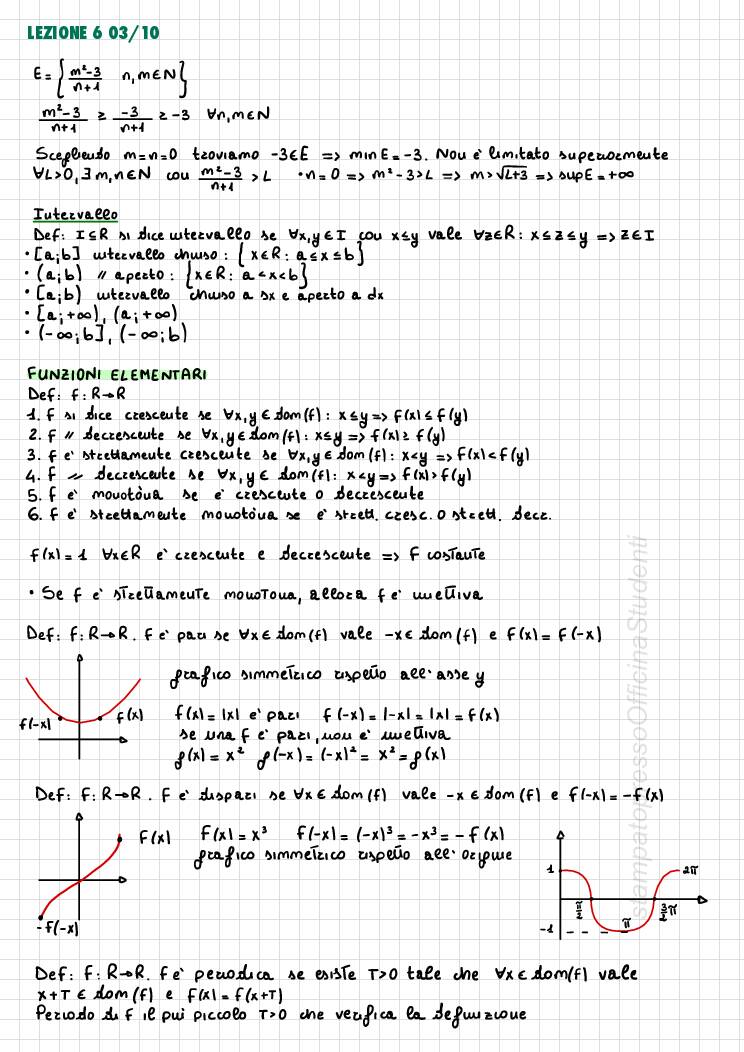 LEZIONE 6 03/10
E = { m²-3 / n+1   n,m∈N }
m²-3 / n+1 ≥ -3 / n+1 ≥ -3 ∀n,m∈N
Scegliendo m=n=0 troviamo -3∈E => minE=-3. Non è limitato superiormente
∀L>0,∃m,n∈N con m²-3 / n+1 >L   •n=0 => m²-3>L => m>√L+3 => supE=+∞
Intervallo
Def: I⊆R si dice intervallo se ∀x,y∈I con x≤y vale ∀z∈R: x≤z≤y => z∈I
• [a;b] intervallo chiuso : {x∈R: a≤x≤b}
• (a;b) // aperto : {x∈R: a<x<b}
• [a;b) intervallo chiuso a sx e aperto a dx
• [a;+∞), (a;+∞)
• (-∞;b], (-∞;b)
FUNZIONI ELEMENTARI
Def: f: R→R
1. f si dice crescente se ∀x,y∈dom(f): x≤y => f(x)≤f(y)
2. f // decrescente se ∀x,y∈dom(f): x≤y => f(x)≥f(y)
3. f e' strettamente crescente se ∀x,y∈dom(f): x<y => f(x)<f(y)
4. f // decrescente se ∀x,y∈ dom(f): x<y => f(x)>f(y)
5. f e' monotòna se e' crescente o decrescente
6. f e' strettamente monotòna se e' strett. cresc. o strett. decr.
f(x)=1 ∀x∈R e' crescente e decrescente => f costante
• Se f e' strettamente monotona, allora f e' iniettiva
Def: f: R→R. f e' pari se ∀x∈dom(f) vale -x∈dom(f) e f(x)=f(-x)
grafico simmetrico rispetto all'asse y
f(-x)
f(x)
f(x)=|x| e' pari   f(-x)=|-x|=|x|=f(x)
se una f e' pari, non e' iniettiva
g(x)=x²   g(-x)=(-x)²=x²=g(x)
Def: f: R→R. f e' dispari se ∀x∈dom(f) vale -x∈dom(f) e f(-x)=-f(x)
f(x)
f(x)=x³   f(-x)=(-x)³=-x³=-f(x)
grafico simmetrico rispetto all'origine
-f(-x)
1
2π
π/2
π
3/2π
-1
Def: f: R→R. f e' periodica se esiste T>0 tale che ∀x∈dom(f) vale
x+T∈dom(f) e f(x)=f(x+T)
Periodo di f il piu piccolo T>0 che verifica la definizione
stampatopressoOfficinaStudenti